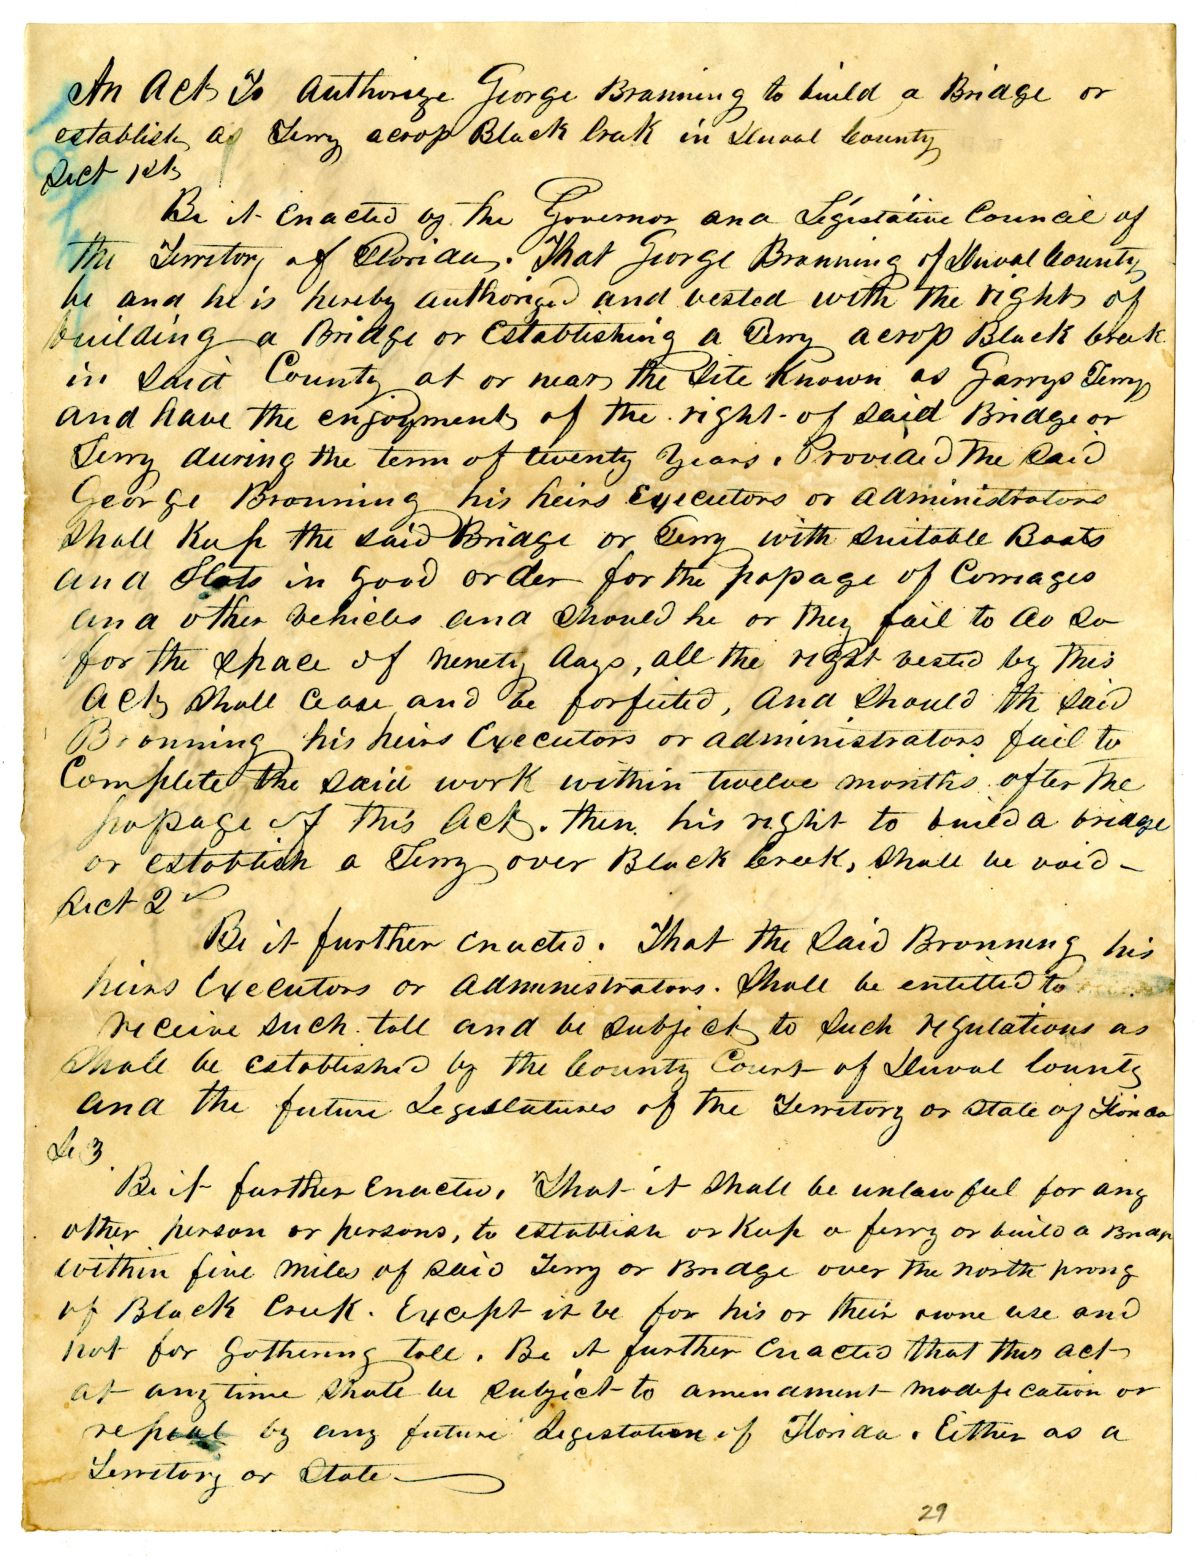 An Act To Authorize George Branning to build a Bridge or
establish a Ferry across Black Creek in Duval County
Sect 1st
Be it Enacted by the Governor and Legislative Council of
the Territory of Florida. That George Branning of Duval County
be and he is hereby authorized and vested with the right of
building a Bridge or Establishing a Ferry across Black Creek
in Said County at or near the Site Known as Garrys Ferry
and have the enjoyment of the right of Said Bridge or
Ferry during the term of twenty Years. Provided the Said
George Branning his heirs Executors or administrators
Shall Keep the said Bridge or Ferry with suitable Boats
and Flats in good order for the passage of Carriages
and other vehicles and should he or they fail to do so
for the space of ninety days, all the right vested by this
Act shall cease and be forfeited, and should the Said
Branning his heirs Executors or administrators fail to
Complete the said work within twelve months after the
passage of this Act. then his right to build a bridge
or establish a Ferry over Black Creek, shall be void —
Sect 2d
Be it further enacted. That the Said Branning his
heirs Executors or administrators. Shall be entitled to
receive such toll and be subject to such regulations as
Shall be established by the County Court of Duval County
and the future Legislatures of the Territory or State of Florida
Se 3
Be it further Enacted, That it shall be unlawful for any
other person or persons, to establish or Keep a ferry or build a Bridge
within five miles of said Ferry or Bridge over the north prong
of Black Creek. Except it be for his or their owne use and
not for gathering toll. Be it further Enacted that this act
at any time shall be subject to amendment modification or
repeal by any future Legislature of Florida. Either as a
Territory or State
29